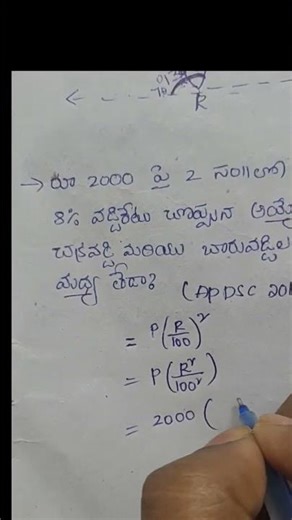 R
→ రూ 2000 పై 2 సం॥లలో
8% వడ్డీరేటు చొప్పున అయ్యే
చక్రవడ్డీ మరియు బారువడ్డీల
మధ్య తేడా?
(APDSC 201
= P(R/100)²
= P(R²/100²)
= 2000 (